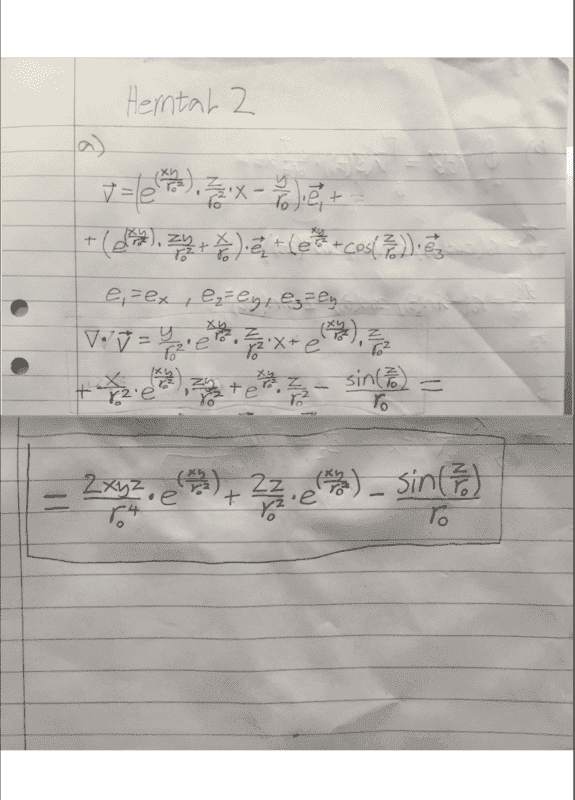 Hemtal 2
a)
v⃗ = (e^(xy/r₀²) · z/r₀² · x − y/r₀) · e⃗₁ +
+ (e^(xy/r₀²) · zy/r₀² + x/r₀) · e⃗₂ + (e^(xy/r₀²) + cos(z/r₀)) · e⃗₃
e₁ = eₓ , e₂ = e_y , e₃ = e_y
∇ · v⃗ = y/r₀² · e^(xy/r₀²) · z/r₀² · x + e^(xy/r₀²) · z/r₀²
+ x/r₀² · e^(xy/r₀²) · zy/r₀² + e^(xy/r₀²) · z/r₀² − sin(z/r₀)/r₀ =
= 2xyz/r₀⁴ · e^(xy/r₀²) + 2z/r₀² · e^(xy/r₀²) − sin(z/r₀)/r₀